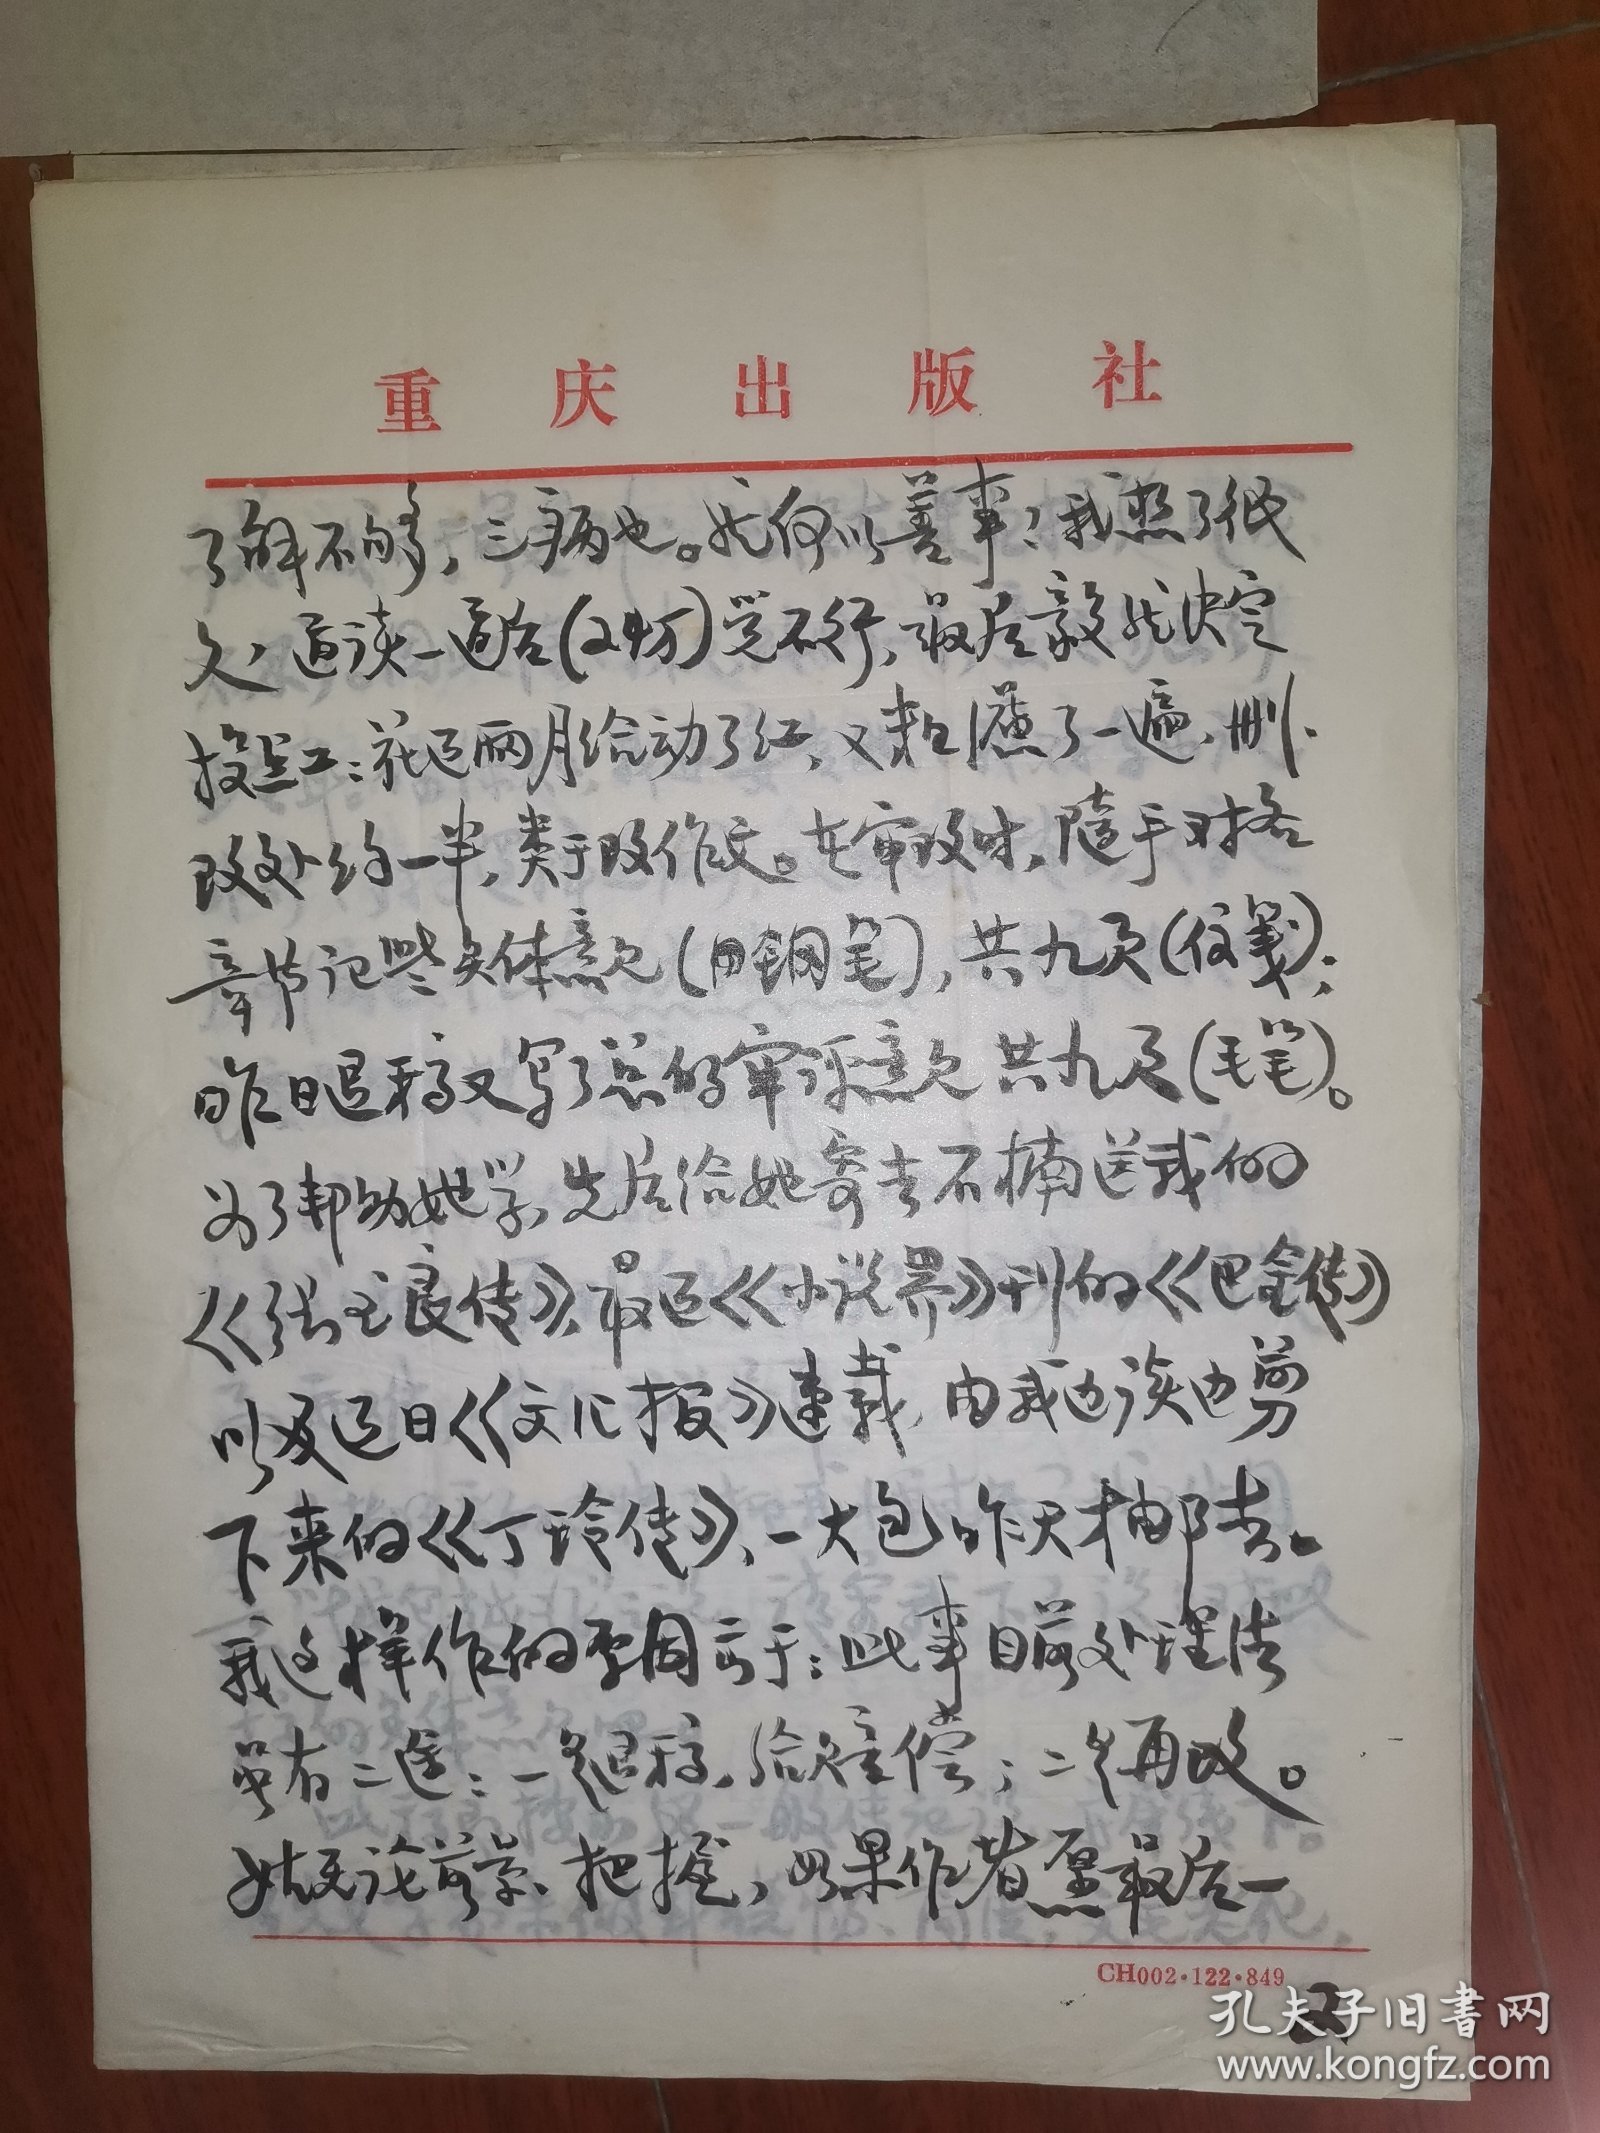 重庆出版社
了解不够，三病也。此何以善事？我愁了很
久，通读一遍后（又卡方）觉不行，最后毅然决定
投益工：花近两月给动了红，又粗濾了一遍，删、
改处约一半，类于改作文。在审改时，随手对各
章节记些具体意见（用钢笔），共九页（信笺）；
昨日退稿又写了总的审评意见共九页（毛笔）。
为了帮助她学，先后给她寄去石楠送我的
《《张玉良传》》，最近《《小说界》》刊的《《巴金传》》
以及近日《《文汇报》》连载，由我边读边剪
下来的《《丁玲传》》，一大包昨天才邮去。
我这样作的原因言于：此事目前处理法
虽有二途：一是退稿，给足赔偿；二是再改。
姑无论前案，把握，如果作者愿最后一
CH002·122·849
孔夫子旧书网
www.kongfz.com